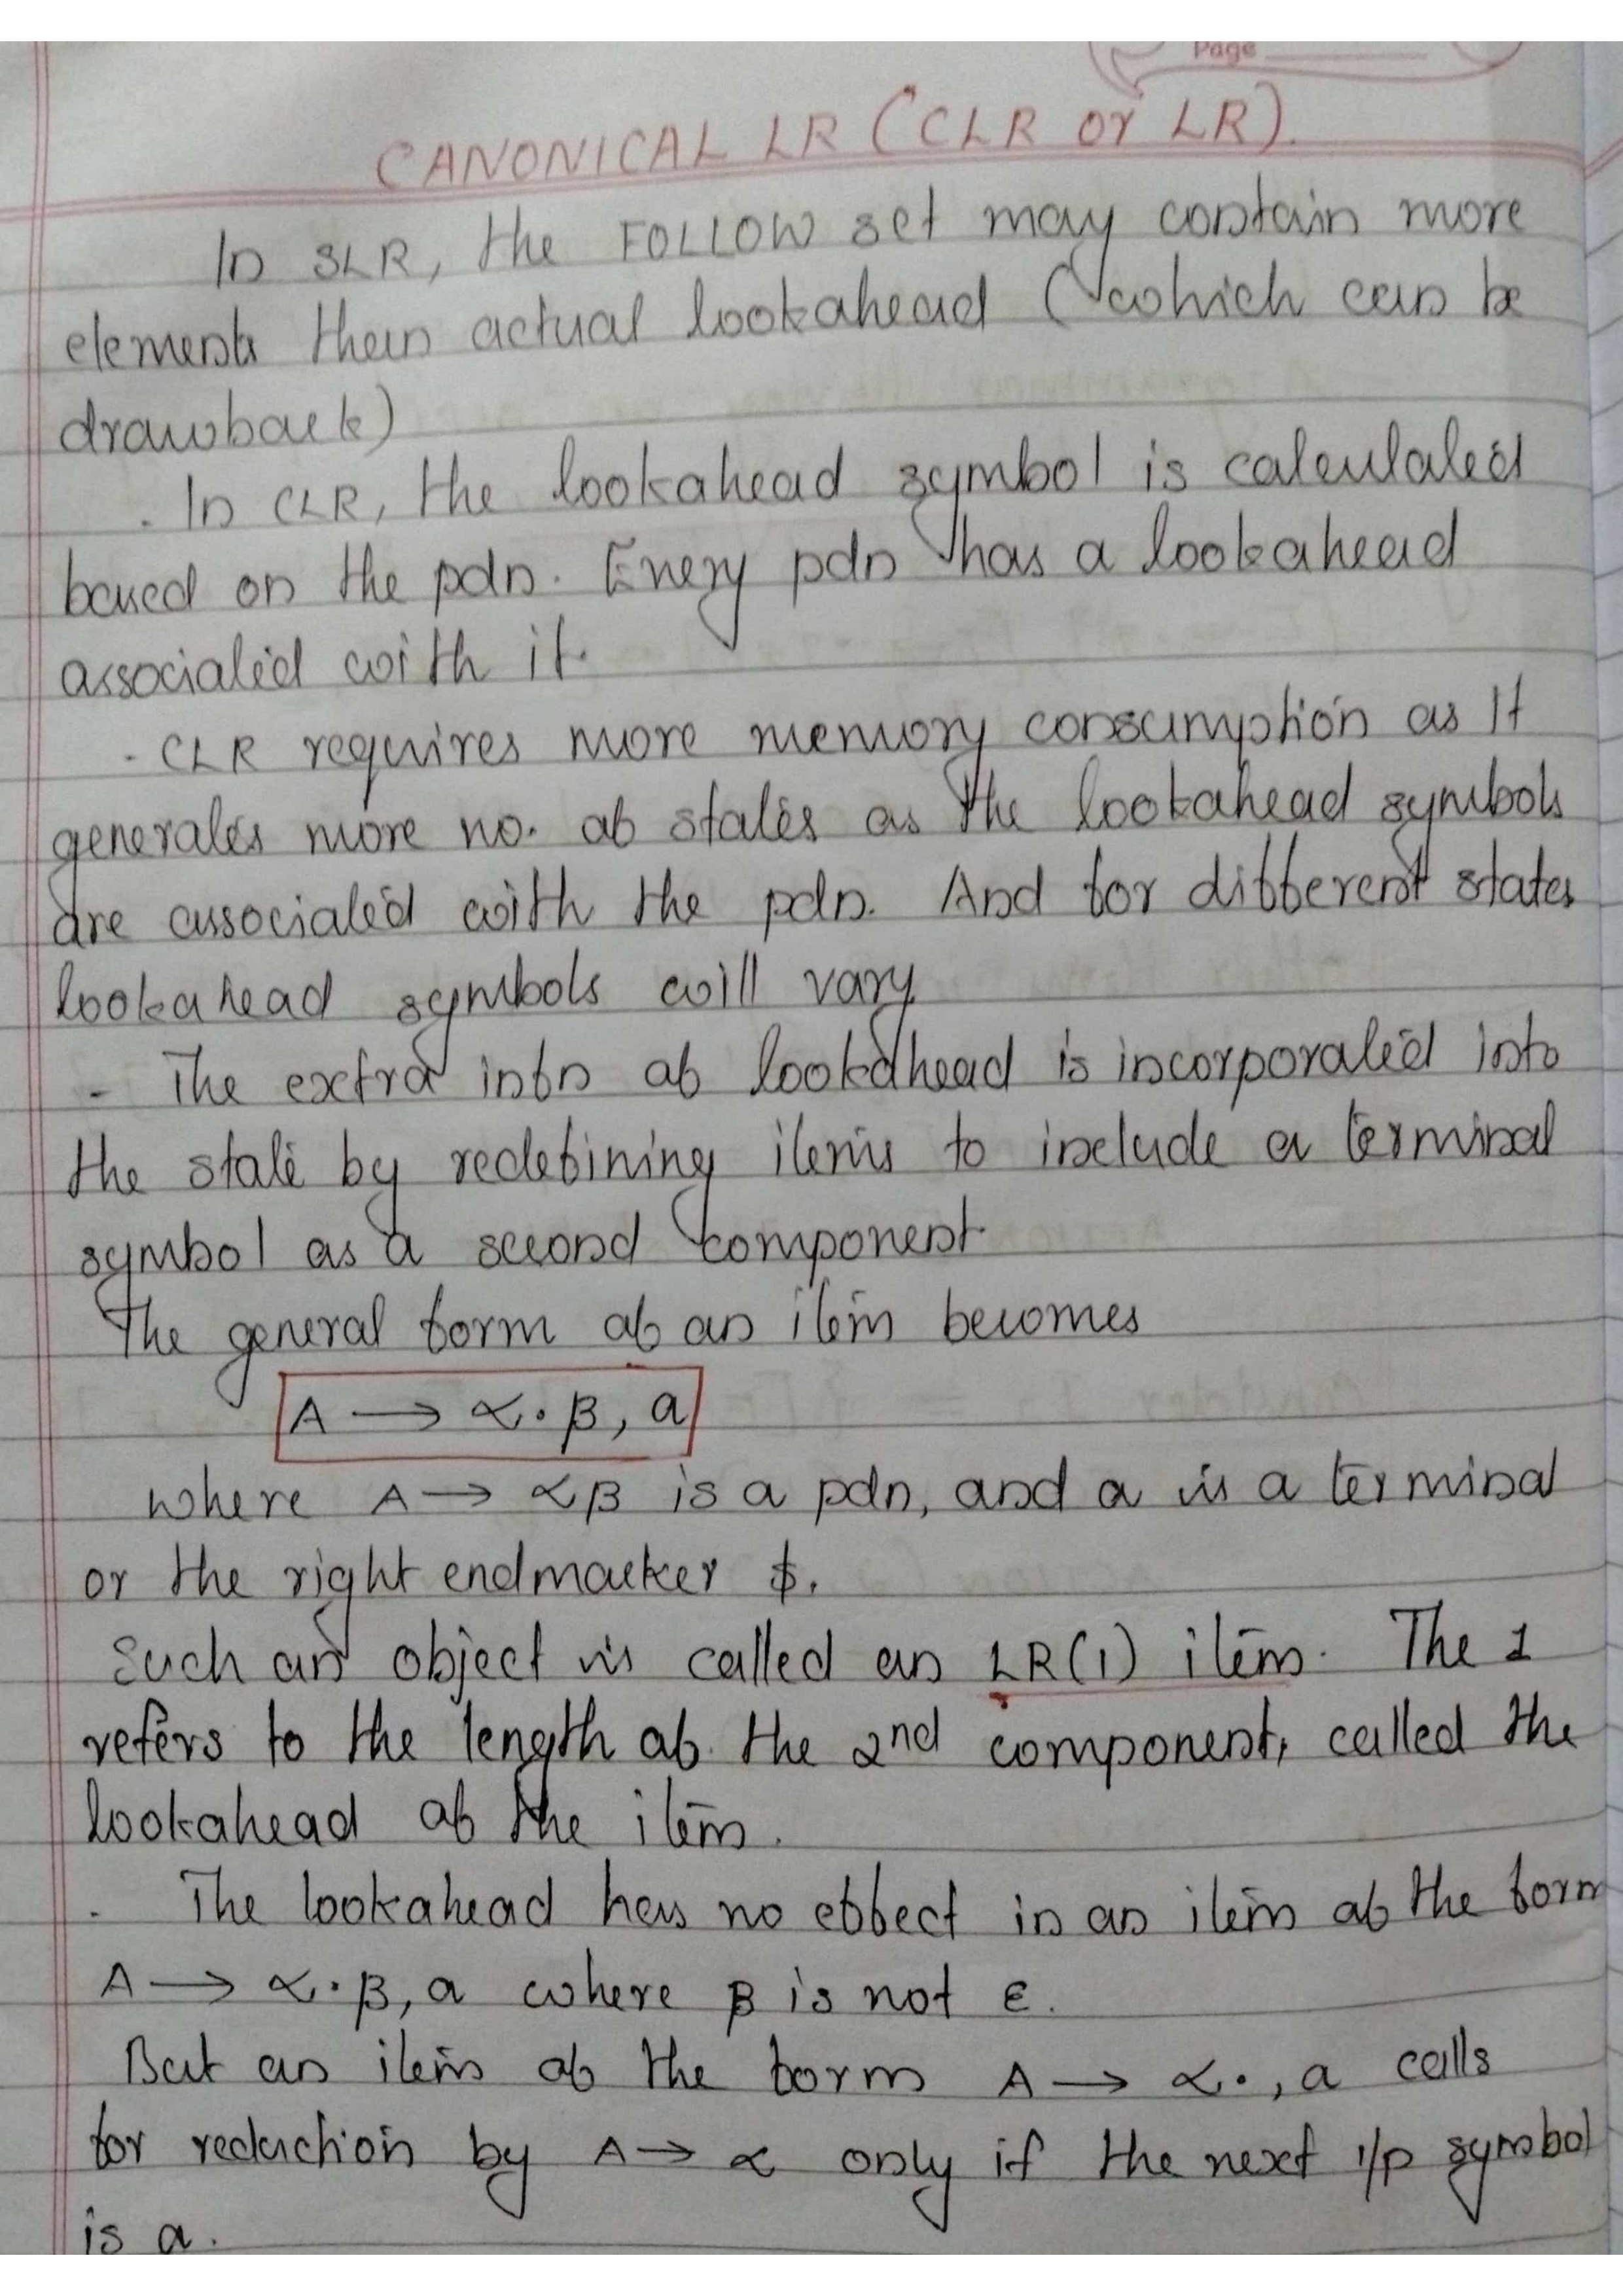 Page
CANONICAL LR (CLR or LR).
In SLR, the FOLLOW set may contain more
elements than actual lookahead (which can be
drawback)
. In CLR, the lookahead symbol is calculated
based on the pdn. Every pdn has a lookahead
associated with it.
- CLR requires more memory consumption as It
generates more no. of states as the lookahead symbols
are associated with the pdn. And for different states
lookahead symbols will vary
- The extra infn of lookahead is incorporated into
the state by redefining items to include a terminal
symbol as a second component.
The general form of an item becomes
A → α.β, a
where A → αβ is a pdn, and a is a terminal
or the right endmarker $.
Such an object is called an LR(1) item. The 1
refers to the length of the 2nd component, called the
lookahead of the item.
. The lookahead has no effect in an item of the form
A → α.β, a where β is not ε.
But an item of the form A → α., a calls
for reduction by A → α only if the next i/p symbol
is a.